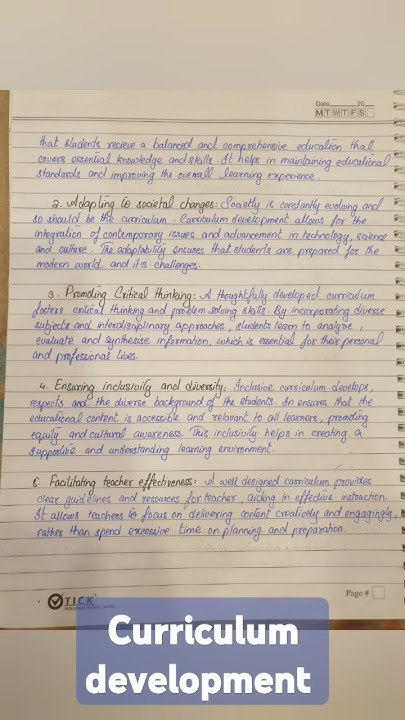 Date 20
M T W T F S
that students recieve a balanced and comprehensive education that
covers essential knowledge and skills. It helps in maintaining educational
standards and improving the overall learning experience.
2. Adapting to societal changes: Societly is constantly evolving and
so should be the curriculam. Curriculum development allows for the
integration of contemporary issues and advancement in technology, science
and culture. The adaptability ensures that students are prepared for the
modern world and its challenges.
3. Promoting Critical thinking: A thoughtfully developed curriculum
fosters critical thinking and problem solving skills. By incorporating diverse
subjects and interdisciplinary approaches, students learn to analyse,
evaluate and synthesise information, which is essential for their personal
and professional lives.
4. Ensaring inclusivity and diversity: Inclusive curriculum develops,
respects and the diverse background of the students. In ensures that the
educational content is accessible and relavant to all learners, promoting
equity and cultural awareness. This inclusivity helps in creating a
supportive and understanding learning environment.
6. Facilitating teacher effectiveness: A well designed curriculum provides
clear guidelines and resources for teacher, aiding in effective instruction.
It allows teachers to focus on delivering content creatively and engagingly,
rather than spend excessive time on planning and preparation.
TICK
Page #
Curriculum
development